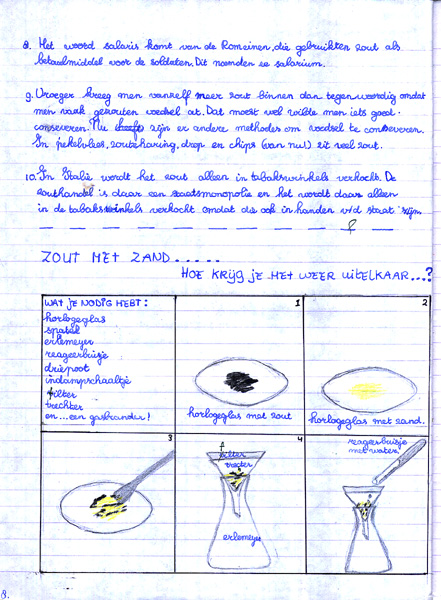 8. Het woord salaris komt van de Romeinen, die gebruikten zout als
betaalmiddel voor de soldaten. Dit noemden ze salarium.
9. Vroeger kreeg men vanzelf meer zout binnen dan tegenwoordig omdat
men vaak gezouten voedsel at. Dat moest wel wilde men iets goed
conserveren. Nu zijn er andere methodes om voedsel te conserveren.
In pekelvlees, zoute haring, drop en chips (van nu) zit veel zout.
10. In Italië wordt het zout alleen in tabakswinkels verkocht. De
zouthandel is daar een staatsmonopolie en het wordt daar alleen
in de tabakswinkels verkocht omdat die ook in handen v/d staat zijn.
ZOUT MET ZAND.....
HOE KRIJG JE HET WEER UIT ELKAAR...?
WAT JE NODIG HEBT:
horlogeglas
spatel
erlemeyer
reageerbuisje
driepoot
indampschaaltje
filter
trechter
en...een gasbrander!
1
horlogeglas met zout
2
horlogeglas met zand.
3
4
filter
trechter
erlemeyer
5
reageerbuisje
met water
8.